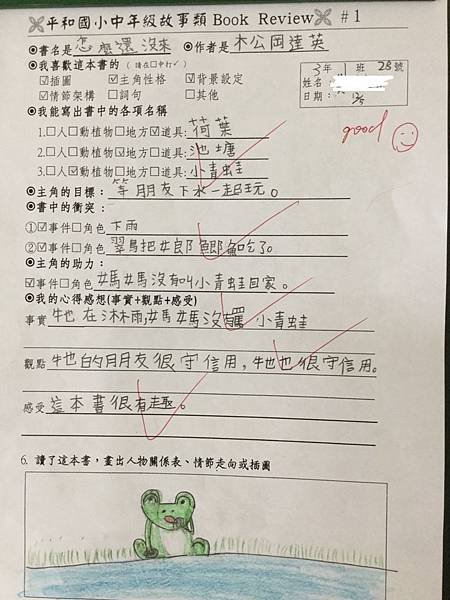 平和國小中年級故事類Book Review # 1
◎書名是 怎麼還沒來 ◎作者是 木公岡達英
◎我喜歡這本書的(請在□中打✓)
☑插圖 ☑主角性格 ☑背景設定
☑情節架構 □詞句 □其他
3年 班 28號
姓名
日期:
good
◎我能寫出書中的各項名稱
1.□人□動植物□地方☑道具:荷葉
2.□人□動植物☑地方□道具:池塘
3.□人☑動植物□地方□道具:小青蛙
◎主角的目標:等朋友下水一起玩。
◎書中的衝突:
①☑事件□角色 下雨
②☑事件□角色 翠鳥把女郎鯽魚吃了。
◎主角的助力:
☑事件□角色 媽媽沒有叫小青蛙回家。
◎我的心得感想(事實+觀點+感受)
事實 牠在淋雨媽媽沒 小青蛙
觀點 牠的朋友很守信用,牠也很守信用。
感受 這本書很有趣。
6. 讀了這本書,畫出人物關係表、情節走向或插圖